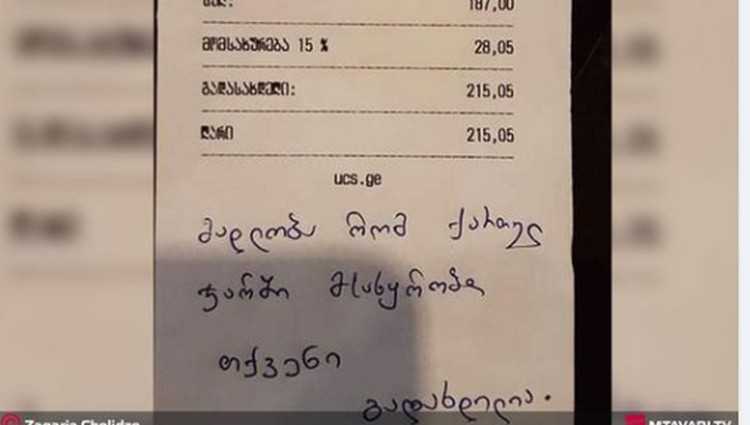 187,00
მომსახურება 15 % 28,05
გადასახდელი: 215,05
ლარი 215,05
ucs.ge
მადლობა რომ ქართულ
ჯარში მსახურობდ
თქვენი
გადახდილია.
Zaqaria Chelidze
MTAVARI.TV